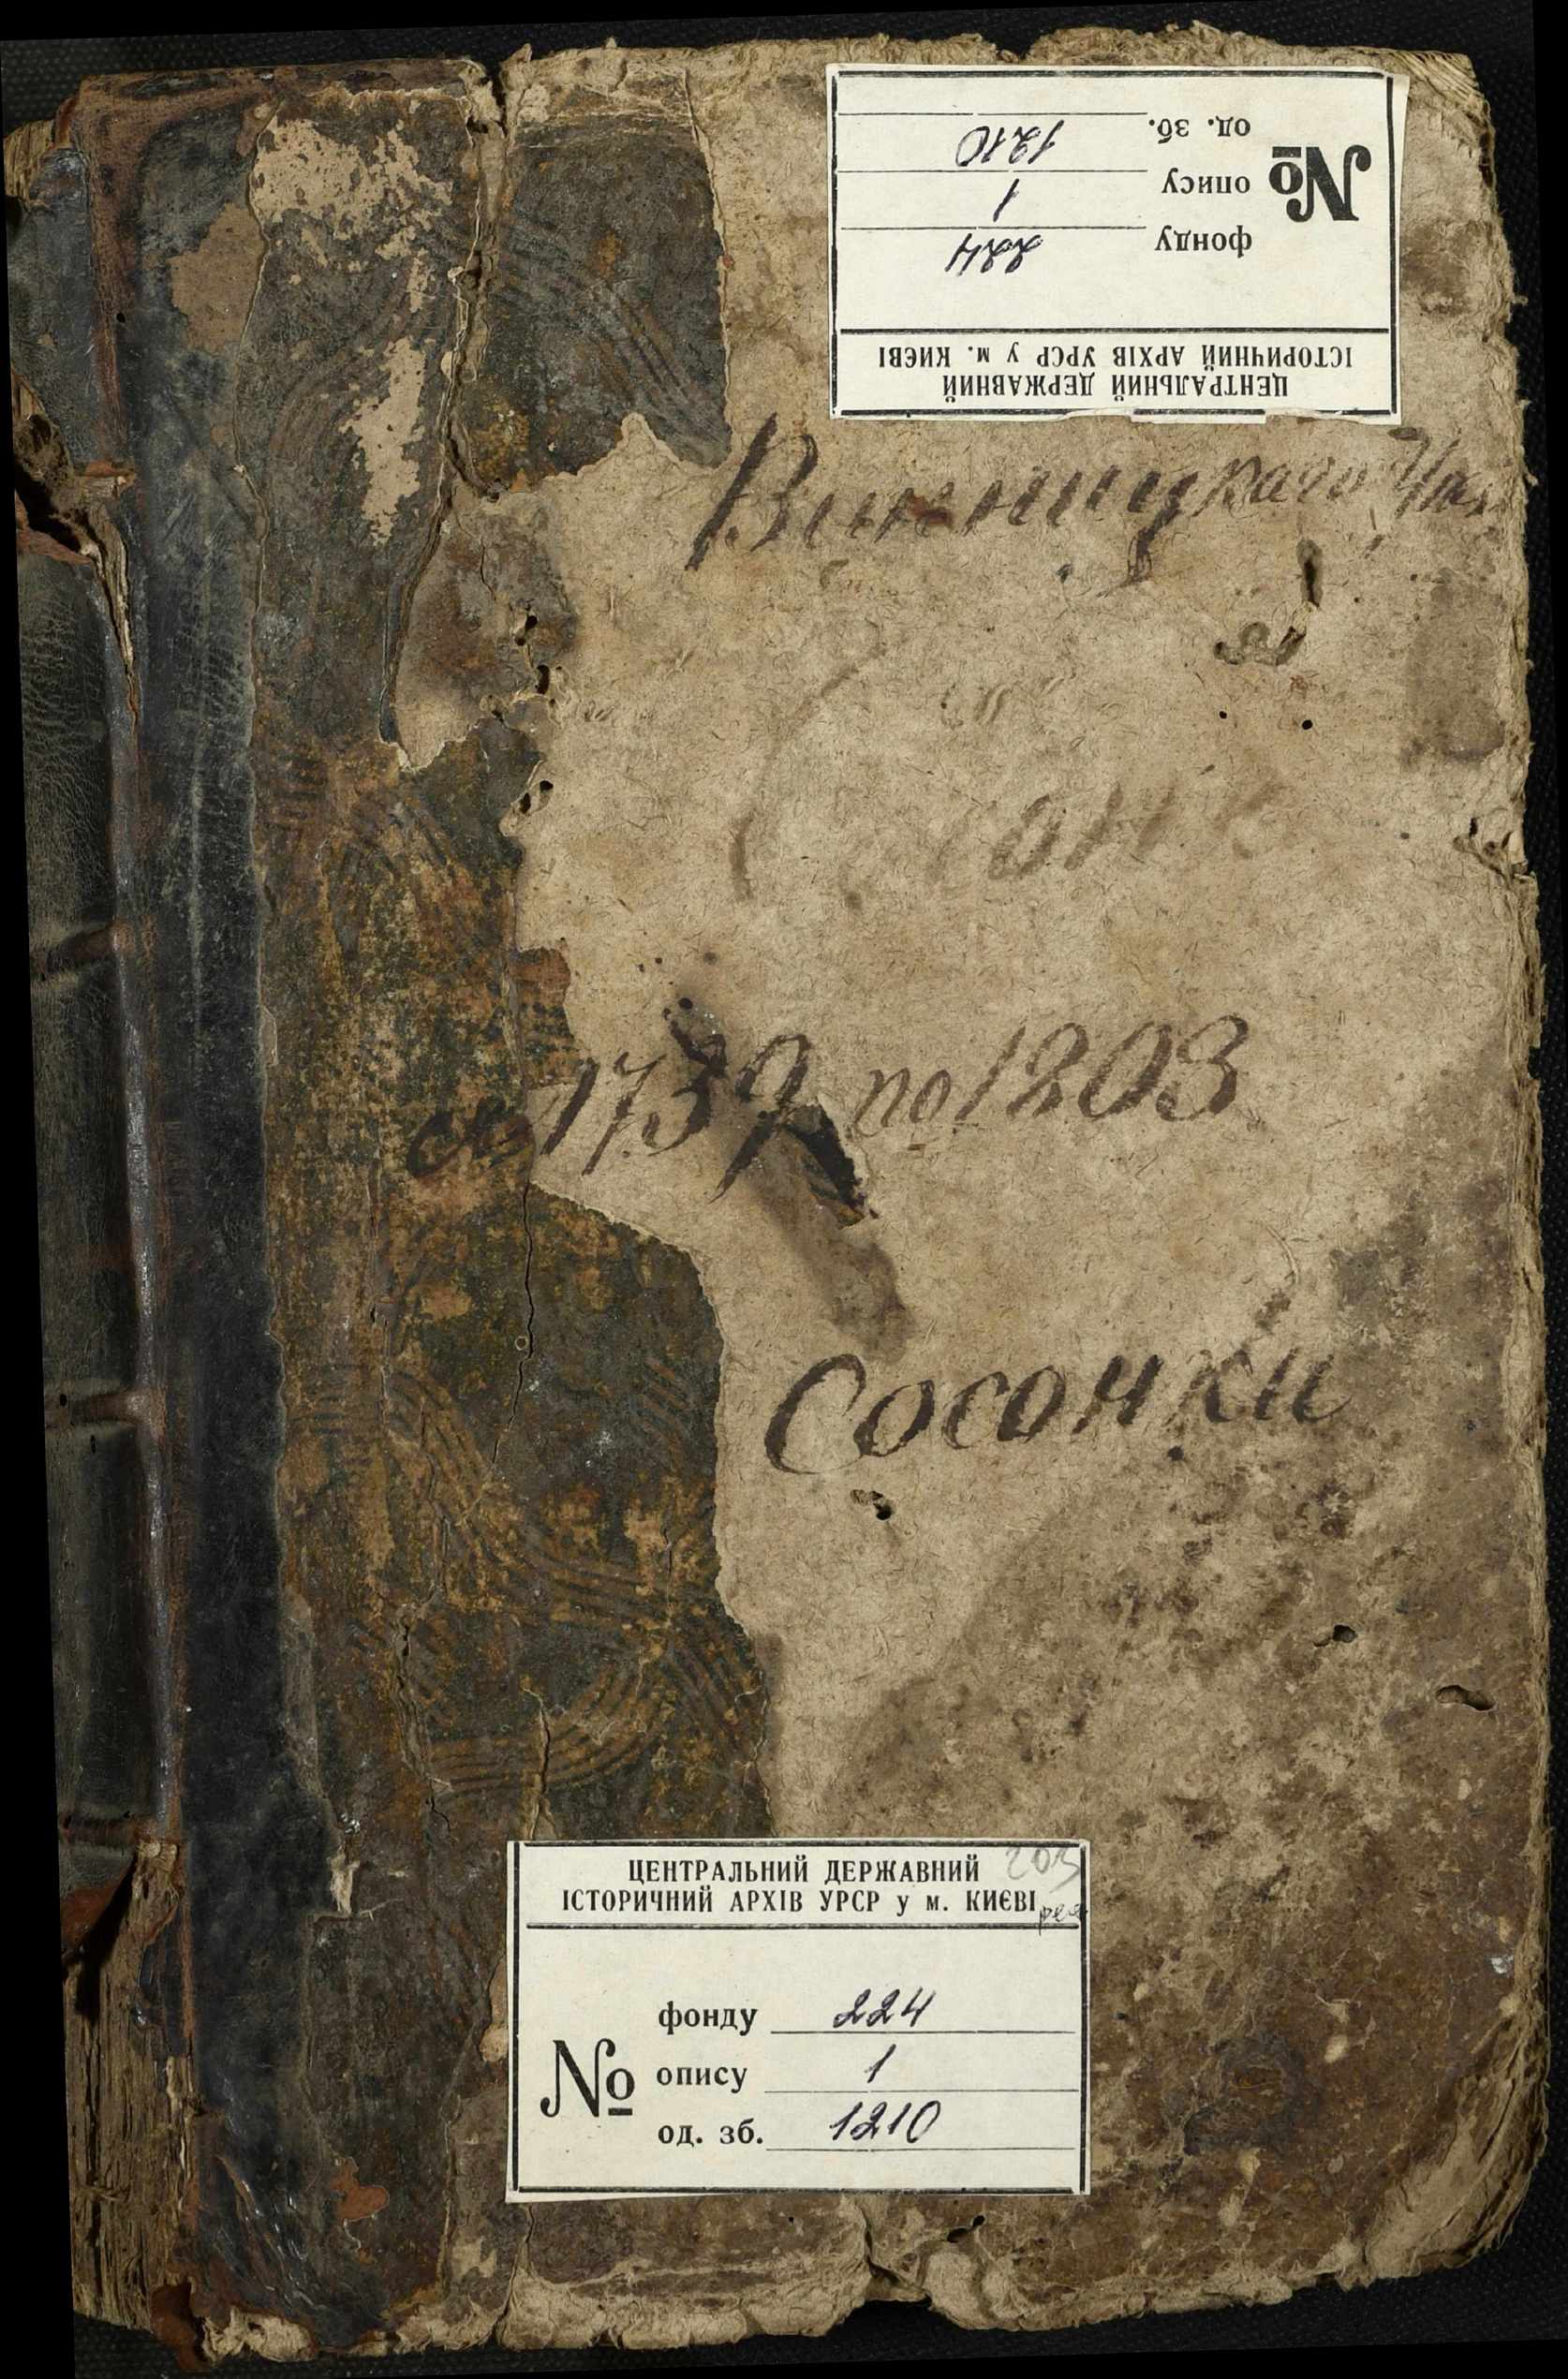 ЦЕНТРАЛЬНИЙ ДЕРЖАВНИЙ
ІСТОРИЧНИЙ АРХІВ УРСР у м. КИЄВІ
№
фонду 224
опису 1
од. зб. 1210
Винницкаго
с 1739 по 1803
Сосонки
ЦЕНТРАЛЬНИЙ ДЕРЖАВНИЙ
ІСТОРИЧНИЙ АРХІВ УРСР у м. КИЄВІ
203
№
фонду 224
опису 1
од. зб. 1210